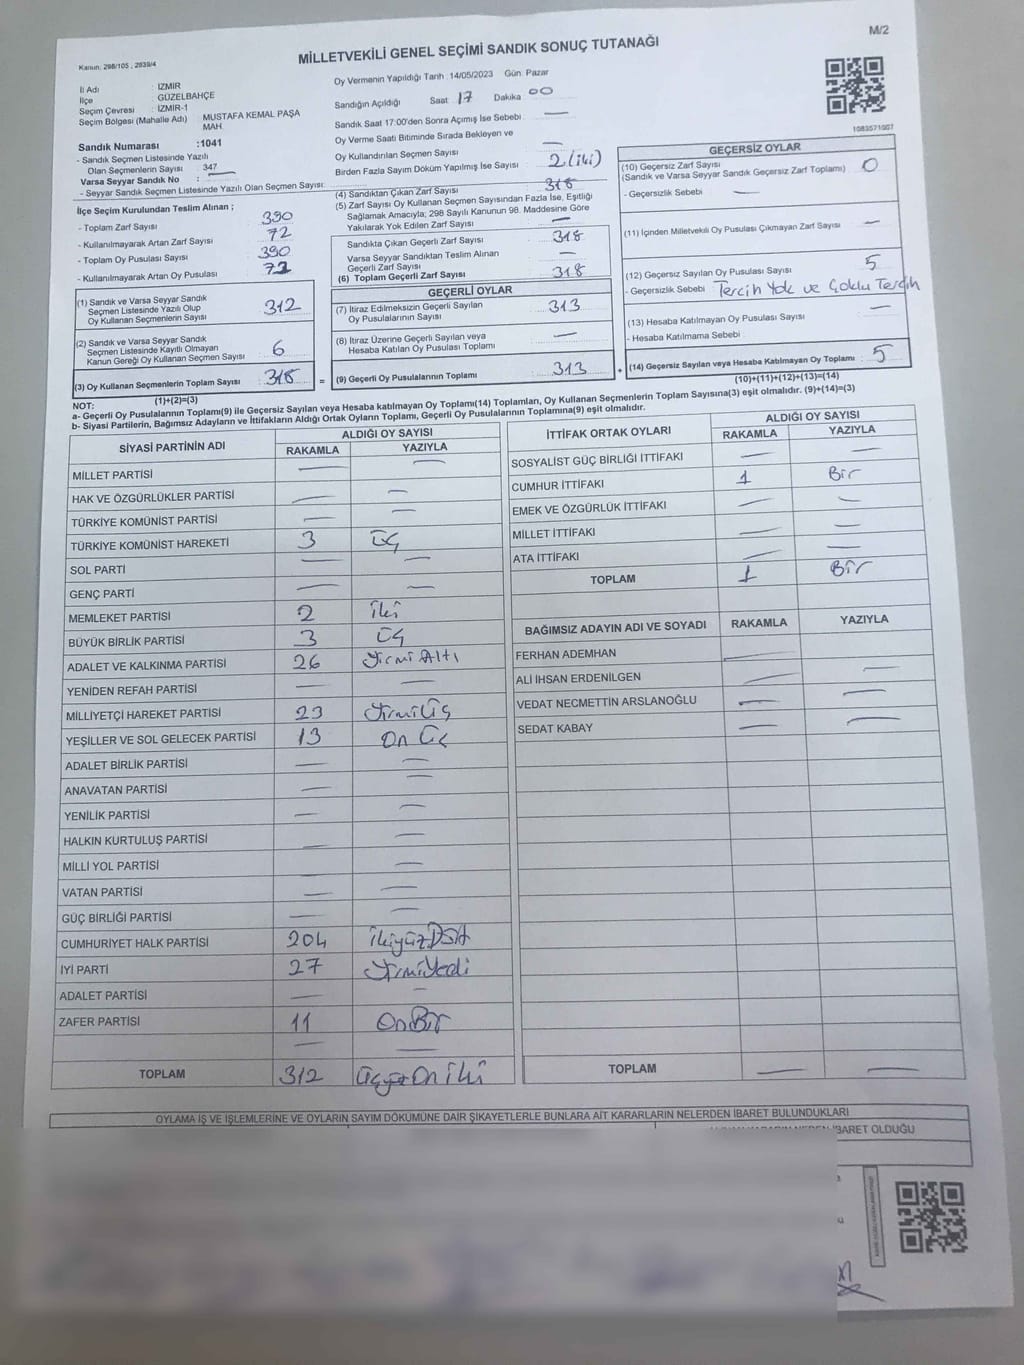 M/2
Kanun: 298/105 , 2839/4
MİLLETVEKİLİ GENEL SEÇİMİ SANDIK SONUÇ TUTANAĞI
İl Adı : İZMİR
İlçe : GÜZELBAHÇE
Seçim Çevresi : İZMİR-1
Seçim Bölgesi (Mahalle Adı) MUSTAFA KEMAL PAŞA MAH.
Sandık Numarası :1041
- Sandık Seçmen Listesinde Yazılı
Olan Seçmenlerin Sayısı 347
Varsa Seyyar Sandık No : —
- Seyyar Sandık Seçmen Listesinde Yazılı Olan Seçmen Sayısı:
Oy Vermenin Yapıldığı Tarih : 14/05/2023 Gün Pazar
Sandığın Açıldığı Saat 17 Dakika 00
Sandık Saat 17:00'den Sonra Açımış İse Sebebi : —
Oy Verme Saati Bitiminde Sırada Bekleyen ve
Oy Kullandırılan Seçmen Sayısı : —
Birden Fazla Sayım Döküm Yapılmış İse Sayısı : 2 (iki)
İlçe Seçim Kurulundan Teslim Alınan ;
- Toplam Zarf Sayısı : 390
- Kullanılmayarak Artan Zarf Sayısı : 72
- Toplam Oy Pusulası Sayısı : 390
- Kullanılmayarak Artan Oy Pusulası : 72
(1) Sandık ve Varsa Seyyar Sandık
Seçmen Listesinde Yazılı Olup
Oy Kullanan Seçmenlerin Sayısı : 312
(2) Sandık ve Varsa Seyyar Sandık
Seçmen Listesinde Kayıtlı Olmayan
Kanun Gereği Oy Kullanan Seçmen Sayısı : 6
(3) Oy Kullanan Seçmenlerin Toplam Sayısı : 318
(1)+(2)=(3)
(4) Sandıktan Çıkan Zarf Sayısı : 318
(5) Zarf Sayısı Oy Kullanan Seçmen Sayısından Fazla İse, Eşitliği
Sağlamak Amacıyla; 298 Sayılı Kanunun 98. Maddesine Göre
Yakılarak Yok Edilen Zarf Sayısı : —
Sandıkta Çıkan Geçerli Zarf Sayısı : 318
Varsa Seyyar Sandıktan Teslim Alınan
Geçerli Zarf Sayısı : —
(6) Toplam Geçerli Zarf Sayısı : 318
GEÇERLİ OYLAR
(7) İtiraz Edilmeksizin Geçerli Sayılan
Oy Pusulalarının Sayısı : 313
(8) İtiraz Üzerine Geçerli Sayılan veya
Hesaba Katılan Oy Pusulası Toplamı : —
= (9) Geçerli Oy Pusulalarının Toplamı : 313
1083571007
GEÇERSİZ OYLAR
(10) Geçersiz Zarf Sayısı
(Sandık ve Varsa Seyyar Sandık Geçersiz Zarf Toplamı) : 0
- Geçersizlik Sebebi : —
(11) İçinden Milletvekili Oy Pusulası Çıkmayan Zarf Sayısı : —
(12) Geçersiz Sayılan Oy Pusulası Sayısı : 5
- Geçersizlik Sebebi : Tercih Yok ve Çoklu Tercih
(13) Hesaba Katılmayan Oy Pusulası Sayısı : —
- Hesaba Katılmama Sebebi :
+ (14) Geçersiz Sayılan veya Hesaba Katılmayan Oy Toplamı : 5
(10)+(11)+(12)+(13)=(14)
NOT:
a- Geçerli Oy Pusulalarının Toplamı(9) ile Geçersiz Sayılan veya Hesaba katılmayan Oy Toplamı(14) Toplamları, Oy Kullanan Seçmenlerin Toplam Sayısına(3) eşit olmalıdır. (9)+(14)=(3)
b- Siyasi Partilerin, Bağımsız Adayların ve İttifakların Aldığı Ortak Oyların Toplamı, Geçerli Oy Pusulalarının Toplamına(9) eşit olmalıdır.
SİYASİ PARTİNİN ADI ALDIĞI OY SAYISI
RAKAMLA YAZIYLA
MİLLET PARTİSİ — —
HAK VE ÖZGÜRLÜKLER PARTİSİ — —
TÜRKİYE KOMÜNİST PARTİSİ — —
TÜRKİYE KOMÜNİST HAREKETİ 3 Üç
SOL PARTİ — —
GENÇ PARTİ — —
MEMLEKET PARTİSİ 2 iki
BÜYÜK BİRLİK PARTİSİ 3 Üç
ADALET VE KALKINMA PARTİSİ 26 Yirmi Altı
YENİDEN REFAH PARTİSİ — —
MİLLİYETÇİ HAREKET PARTİSİ 23 Yirmi Üç
YEŞİLLER VE SOL GELECEK PARTİSİ 13 On Üç
ADALET BİRLİK PARTİSİ — —
ANAVATAN PARTİSİ — —
YENİLİK PARTİSİ — —
HALKIN KURTULUŞ PARTİSİ — —
MİLLİ YOL PARTİSİ —
VATAN PARTİSİ — —
GÜÇ BİRLİĞİ PARTİSİ — —
CUMHURİYET HALK PARTİSİ 204 ikiyüzDört
İYİ PARTİ 27 YirmiYedi
ADALET PARTİSİ — —
ZAFER PARTİSİ 11 OnBir
— —
TOPLAM 312 ÜçyüzOn iki
İTTİFAK ORTAK OYLARI ALDIĞI OY SAYISI
RAKAMLA YAZIYLA
SOSYALİST GÜÇ BİRLİĞİ İTTİFAKI — —
CUMHUR İTTİFAKI 1 Bir
EMEK VE ÖZGÜRLÜK İTTİFAKI — —
MİLLET İTTİFAKI — —
ATA İTTİFAKI — —
TOPLAM 1 Bir
BAĞIMSIZ ADAYIN ADI VE SOYADI RAKAMLA YAZIYLA
FERHAN ADEMHAN —
ALİ İHSAN ERDENİLGEN — —
VEDAT NECMETTİN ARSLANOĞLU — —
SEDAT KABAY — —
TOPLAM — —
OYLAMA İŞ VE İŞLEMLERİNE VE OYLARIN SAYIM DÖKÜMÜNE DAİR ŞİKAYETLERLE BUNLARA AİT KARARLARIN NELERDEN İBARET BULUNDUKLARI
İBARET OLDUĞU